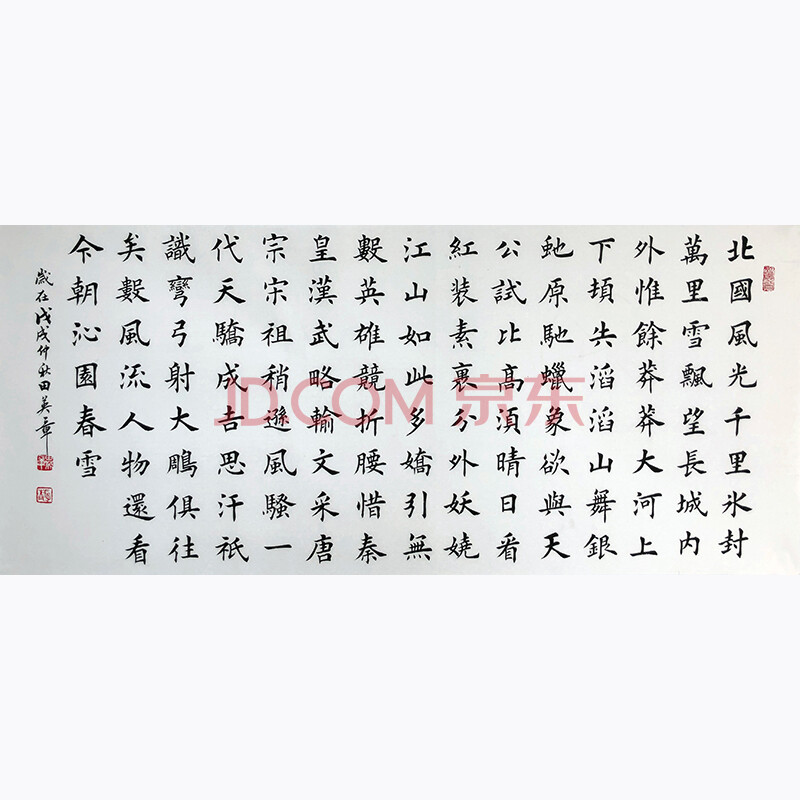 北國風光千里氷封
萬里雪飄望長城内
外惟餘莽莽大河上
下頓失滔滔山舞銀
虵原馳蠟象欲與天
公試比髙須晴日看
紅装素裹分外妖嬈
江山如此多嬌引無
數英雄競折腰惜秦
皇漢武略輸文采唐
宗宋祖稍遜風騷一
代天驕成吉思汗衹
識彎弓射大鵰俱往
矣數風流人物還看
今朝沁園春雪
歲在戊戌仲秋田英章
JD.COM 京东